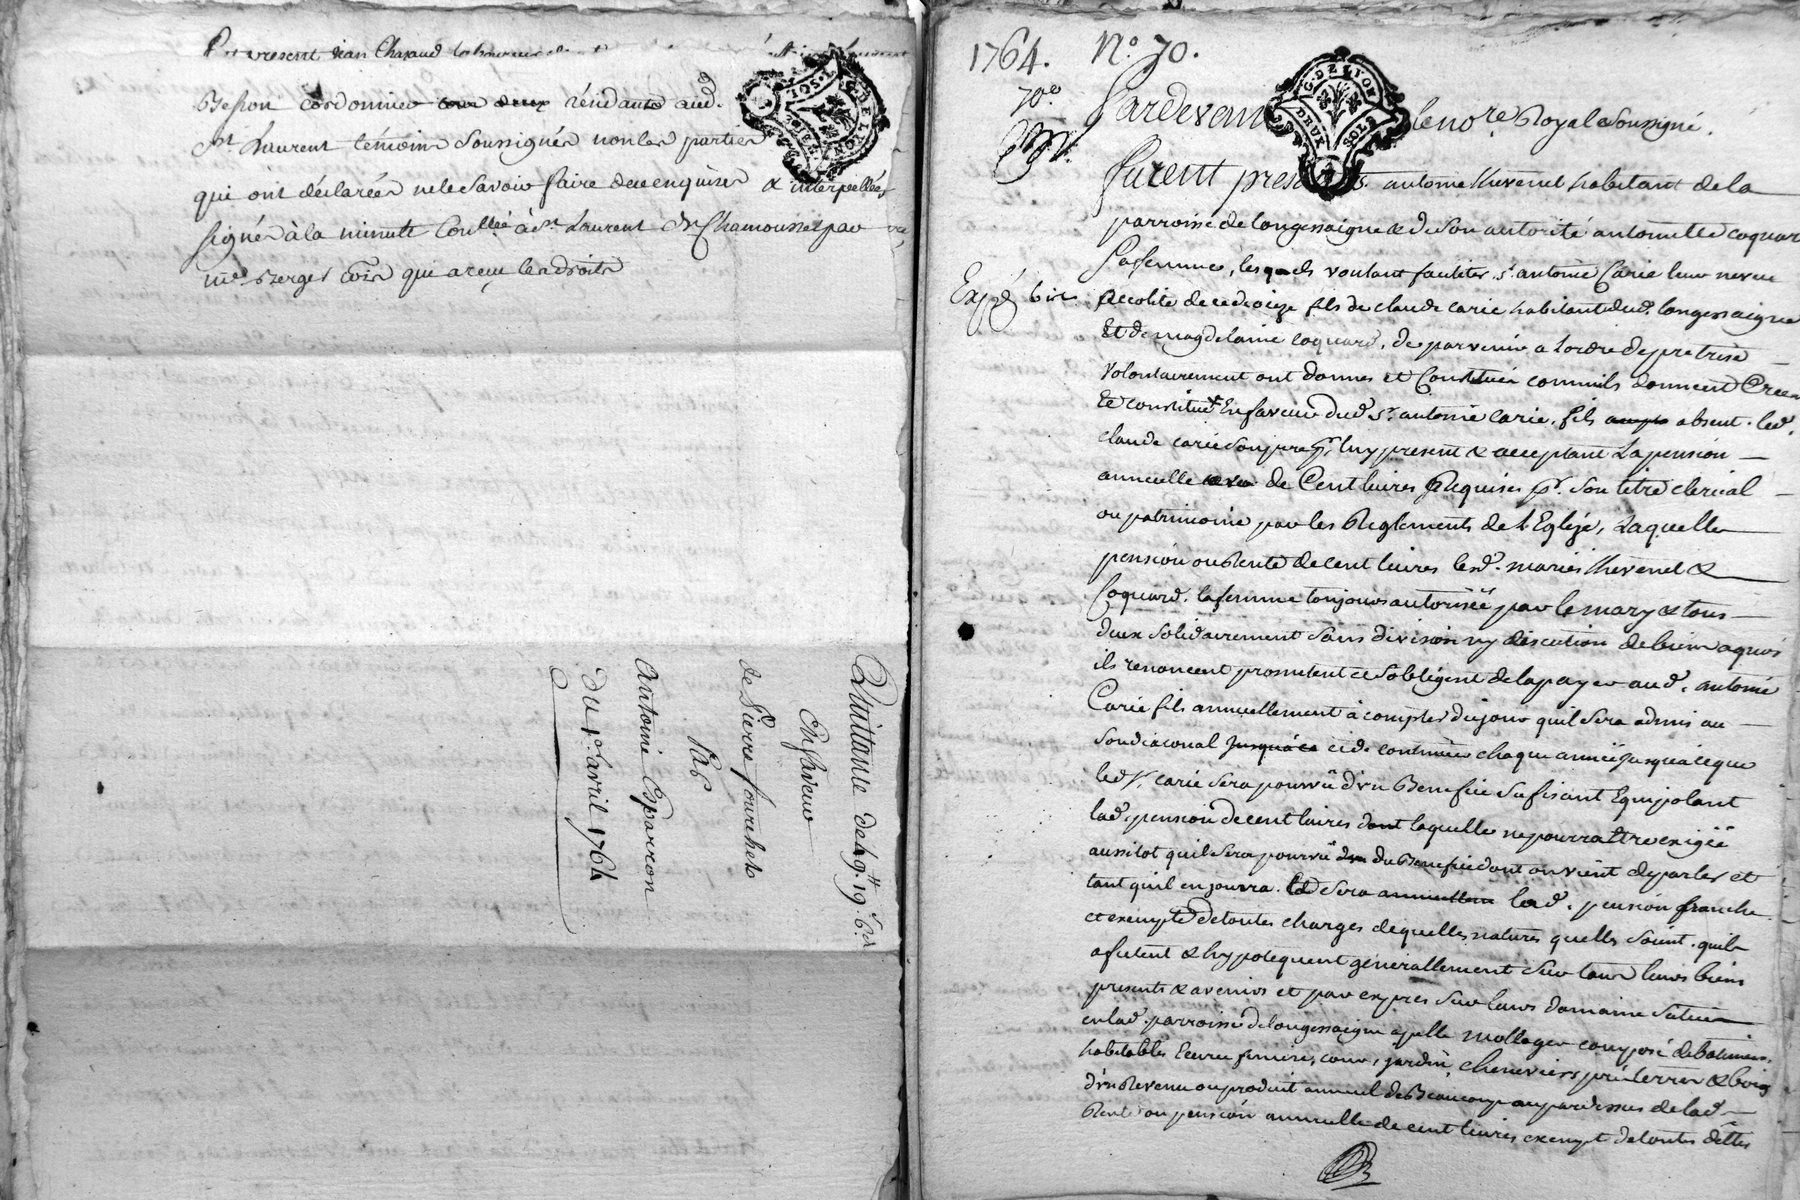 present jean Chavaud laboureur
Besson cordonnier tous deux résidants aud.
St Laurent témoins soussignés non les parties
qui ont déclarées ne le savoir faire de ce enquises & interpellées
signés à la minute Conllée à St. Laurent de Chamousset par
me. Berger Coir qui a reçu les droits
G. DE LYON
Quittance de 49.tt 19.s 6.d
En faveur
de Pierre fourchet
Par
Antoine Esparron
du 1.er avril 1764
1764. N.o 70.
70.e
G. DE LYON
DEUX SOLS
Pardevant le no.re Royal soussigné.
furent presents. antoine thevenet habitant de la
parroisse de longessaigne & de son autorité antoinette coquard
sa femme, lesquels voulant faciliter s.r antoine Carie leur neveu
Exp.é bis
accolite de ce diocize fils de claude carie habitant dud. longessaigne
Et de magdelaine coquard, de parvenir a lordre de pretrise
volontairement ont donnés et Constitués comme ils donnent Créent
Et constituent En faveur dud. s.r antoine carie, fils absent. led.
claude carie son pere icy present & acceptant La pension
annuelle de Cent livres Requise pr. son titre clerical
ou patrimoine par les Reglements de l'Eglize, Laquelle
pension ou Rente de cent livres lesd. mariés thevenet &
Coquard. la femme toujours autorisée par le mary & tous
deux solidairement sans division ny discution de biens a quoi
ils renoncent promettent et s'obligent de la payer aud. antoine
Carie fils annuellement à compter du jour quil sera admis au
soudiaconat jusqu'à ce et de continuer chaque année jusqu'à ce que
led. s.r carie sera pourvû d'un Benefice sufisant Equipolant
lad. pension de cent livres dont laquelle ne pourra être exigée
aussitot quil sera pourvû d'un du Benefice dont on vient de parler et
tant quil en jouira. Et sera annuellem lad. pension franche
et exempte de toutes charges de quelles natures quelles soient. quils
afectent & hypotequent generallement sur tous leurs biens
presents & avenirs et par exprès sur leurs domaine situés
en lad. parroisse de longessaigne apellé mollager composé de batiments
habitables Ecurie feniere, cour, jardin, cheneviers prés terres & bois
d'un Revenu ou produit annuel de Beaucoup au pardessus de lad.
Rente ou pension annuelle de cent livres exempt de toutes dettes